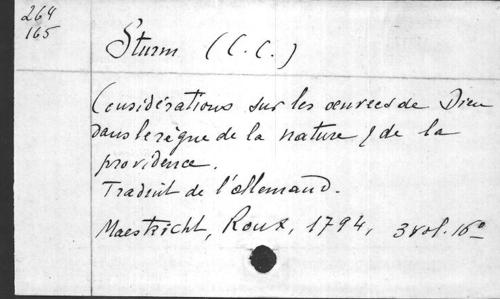 264
165
Sturm (C.C.)
Considérations sur les œuvres de Dieu
dans le règne de la nature & de la
providence.
Traduit de l'Allemand.
Maestricht, Roux, 1794, 3 vol. 16º